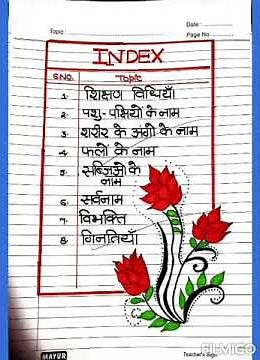 Date :
Topic
Page No
INDEX
S.NO. Topic
1. शिक्षण विधियाँ
2. पशु-पक्षियो के नाम
3. शरीर के अंगो के नाम
4. फलो के नाम
5. सब्जिओ के
नाम
6. सर्वनाम
7. विभक्ति
8. गिनतियाँ
MAYUR
Teacher's Sign
FILMIGO